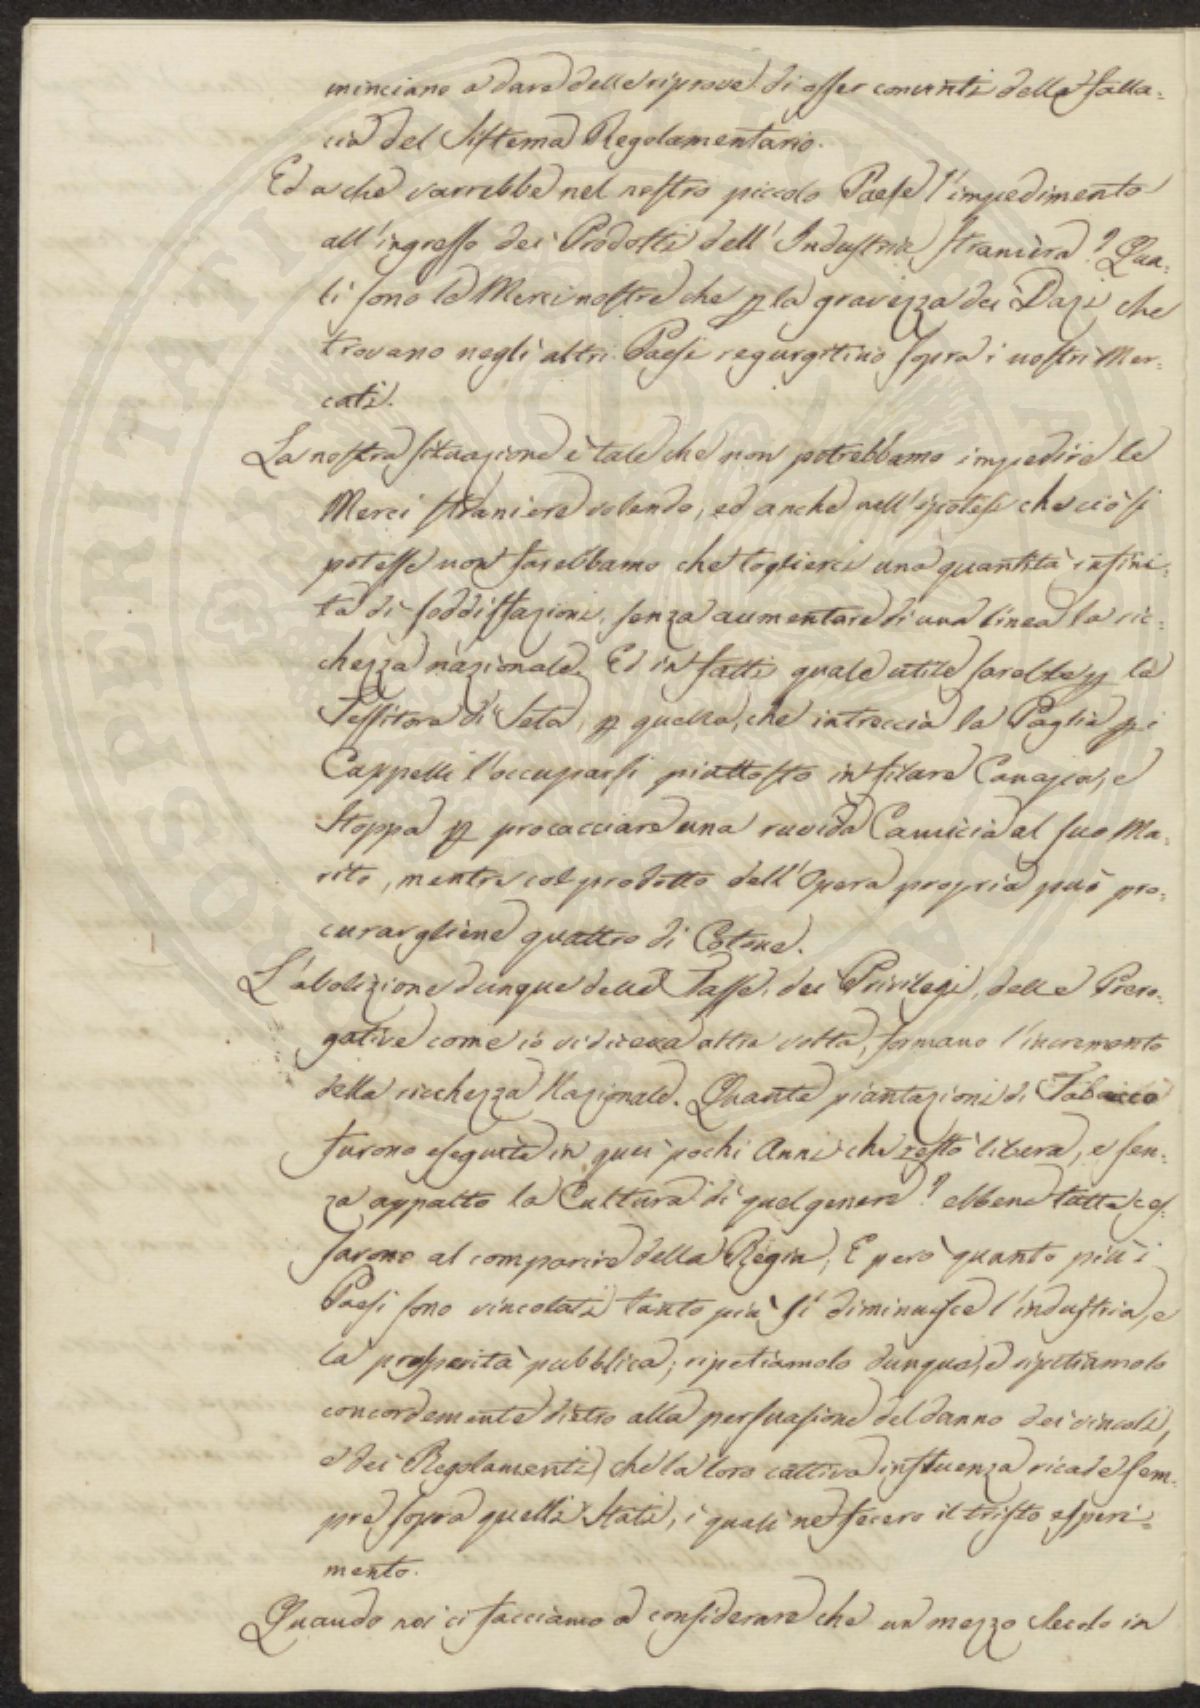 minciano a dare delle riprove di esser convinti della falla=
cia del Sistema Regolamentario.
Ed a che varrebbe nel nostro piccolo Paese l'impedimento
all'ingresso dei Prodotti dell'Industria straniera? Qua=
li sono le Merci nostre che p la gravezza dei Dazj che
trovano negli altri Paesi regurgitino sopra i nostri Mer=
cati.
La nostra situazione è tale che non potrebbamo impedire le
Merci straniere volendo, ed anche nell'ipotesi che ciò si
potesse non farebbamo che toglierci una quantità infini=
ta di soddisfazioni, senza aumentare di una linea la ric=
chezza nazionale. Ed in fatti quale utile sarebbe p la
Tessitora di Seta, p quella, che intreccia la Paglia p i
Cappelli l'occuparsi piuttosto in filare Canapa, e
Stoppa p procacciare una ruvida Camicia al suo Ma=
rito, mentre col prodotto dell'Opera propria può pro=
curargliene quattro di Cotone.
L'abolizione dunque delle Tasse, dei Privilegj, delle Prero=
gative come io vi diceva altra volta, formano l'incremento
della ricchezza Nazionale. Quante piantazioni di Tabacco
furono eseguite in quei pochi Anni che restò libera, e sen=
za appalto la Cultura di quel genere? ebbene tutte ces=
sarono al comparire della Regia; E però quanto più i
Paesi sono vincolati tanto più si diminuisce l'industria, e
la prosperità pubblica; ripetiamolo dunque, e ripetiamolo
concordemente dietro alla persuasione del danno dei vincoli,
e dei Regolamenti, che la loro cattiva influenza ricade sem=
pre sopra quelli Stati, i quali ne fecero il tristo esperi=
mento.
Quando noi ci facciamo a considerare che un mezzo Secolo in